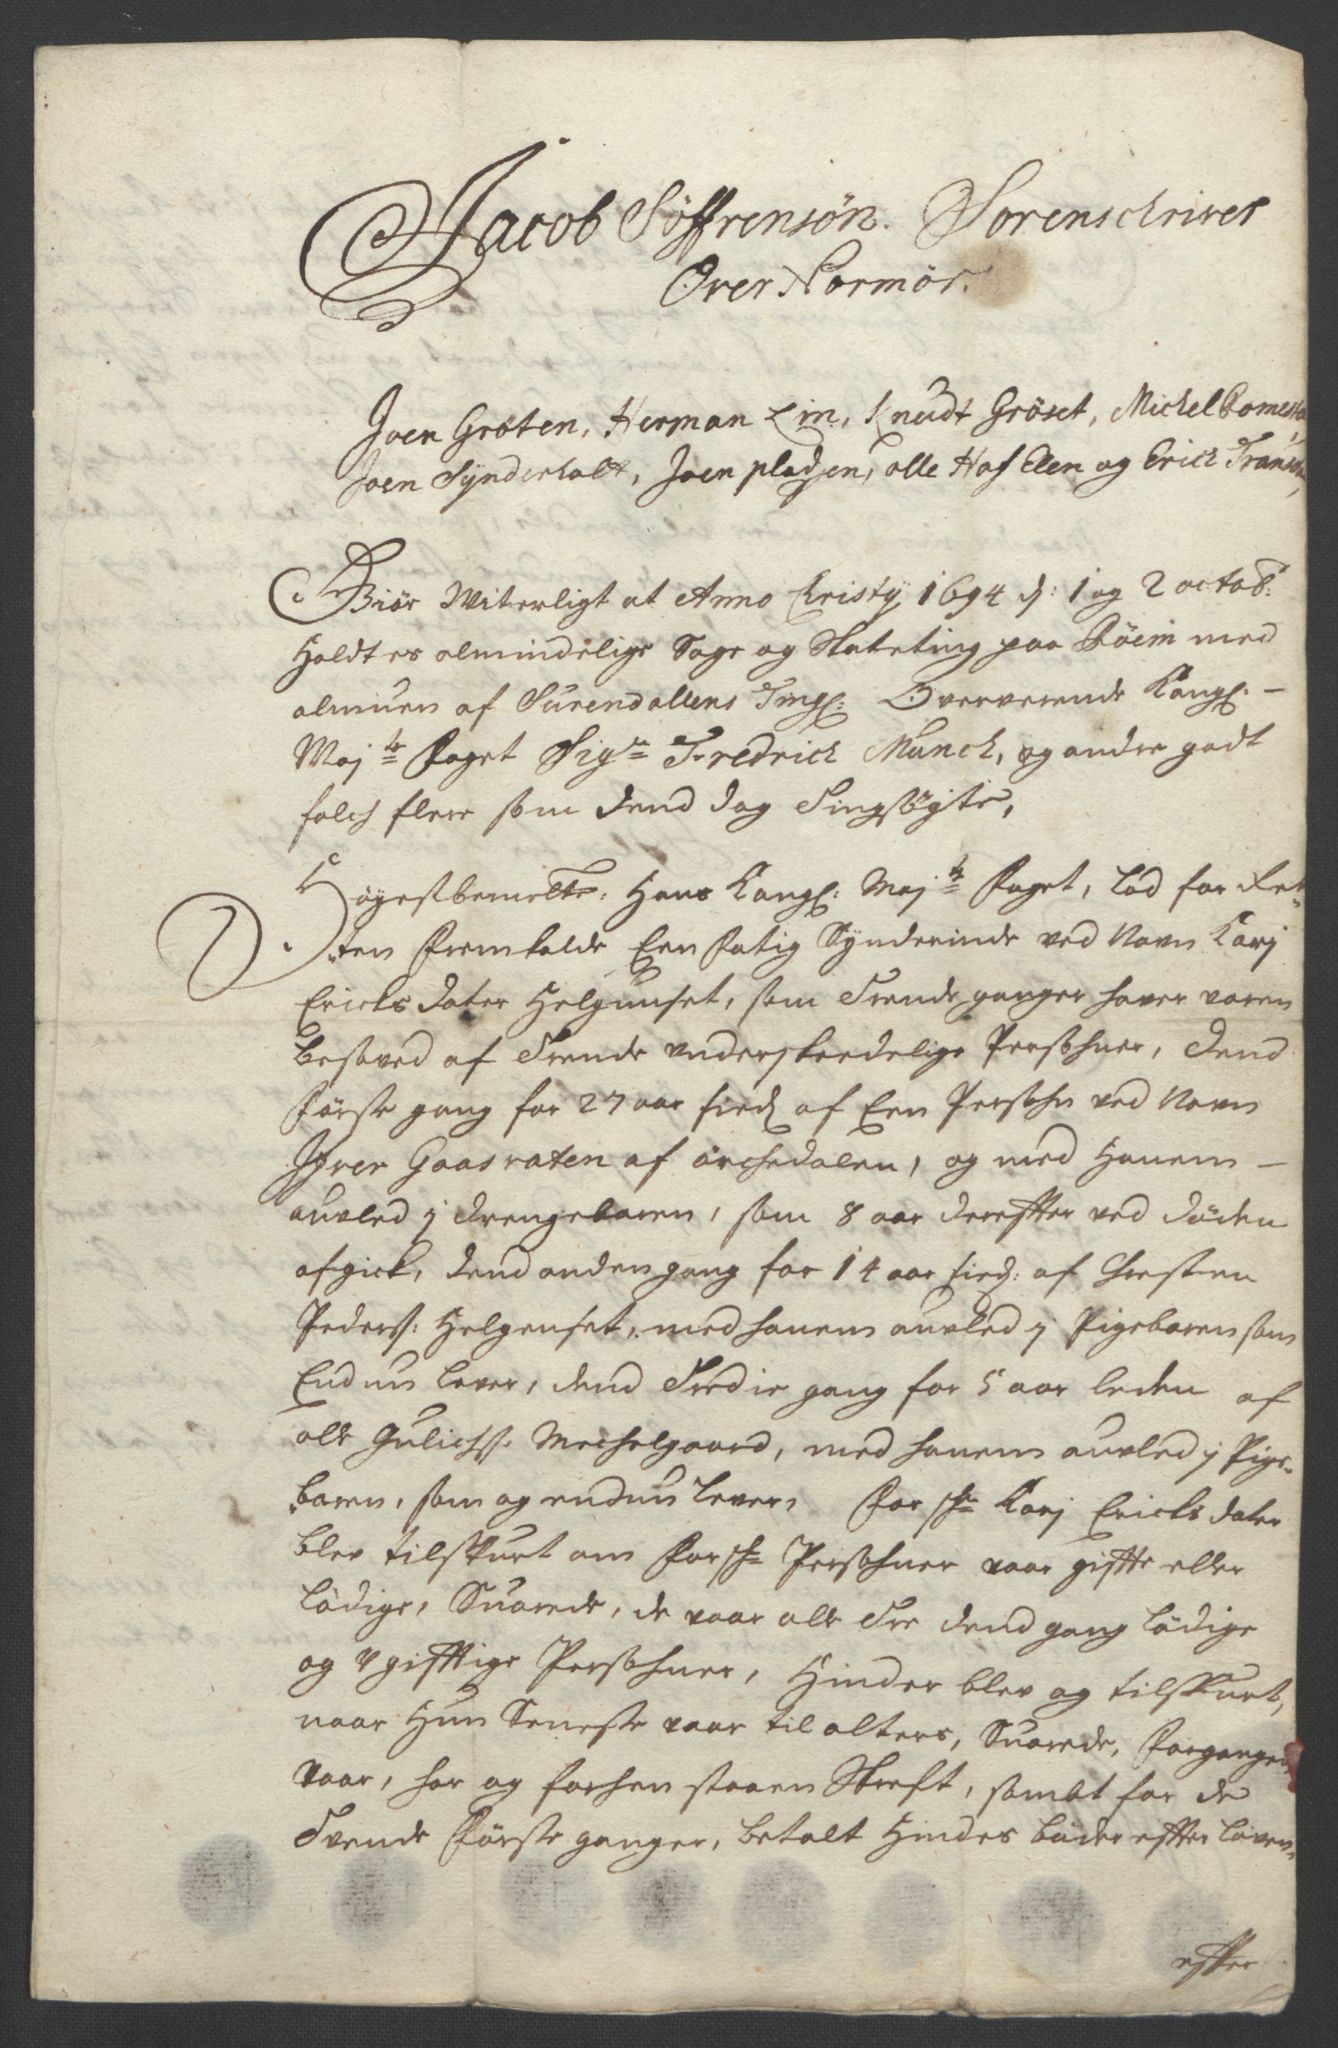 Jacob Søffrensøn. Sorenschriver
Over Normør.
Joen Grøten, Herman Lin, Knudt Grøset, Michel Bomesta
Joen Synderhalt, Joen pladsen, olle Hafs Elen og Erich Transø
Giør Witerligt at Anno Christÿ 1694 d: 1 og 2 octob:
Holdtes almindelige Sage og Skateting paa Bøeim med
almuen af Surendallens Tingl: Oververende Kongl:
Maj.ts Foget Sig.r Fredrich Munch, og andre godt
folch flere som dend dag Tingsøgte,
Høgestbemelte: Hans Kongl: Maj.ts Foget, lod for Ret-
ten Fremkalde Een Fatig Synderinde ved Navn Karj
Ericksdater Helgunset, som Trende ganger haver varen
besoved af Trende underskeedelige Persohner, Dend
Første gang for 27 aar sied af Een Persohn ved Navn
Ifver Gaasvaten af orchedalen, og med Hanem
auvled j drengebaren, som 8 aar derefter ved døden
afgick, dend anden gang for 14 aar sied: af Christen
Peders: Helgenset, med hanem auvled j Pigebaren som
Endnu lever, dend Tredie gang for 5 aar leden af
olle Gulichs: Mechelgaard, med hanem auvled j Pige-
baren, som og endnu lever, For sch.e Karj Ericksdater
blev tilspurt om For sch.e Persohner vaar gifte eller
lødige, Svarede, de vaar alle Tre dend gang lødige
og ugifftige Persohner, Hinder blev og tilspurt,
naar Hun Seneste vaar til alters, Svarede, Forgangen
Vaar, har og forhen staaen Skrift, sambt for de
Tvende Første ganger, betalt Hindes bøder efter loven,
efter